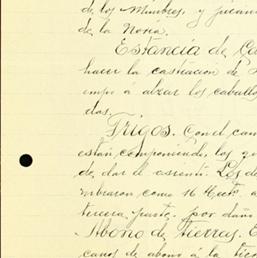 de los Mimbres, y jucame
de la Noria.
Estancia de Ca
hacer la castracion de
empo á alzar los caballo
dos.
Trigos. Con el cam
están componiendo, los qu
de dar el asiento. Los de
sembraron como 16 Hects. a
tercera parte, por daño
Abono de tierras. E
canos de abono á la tier